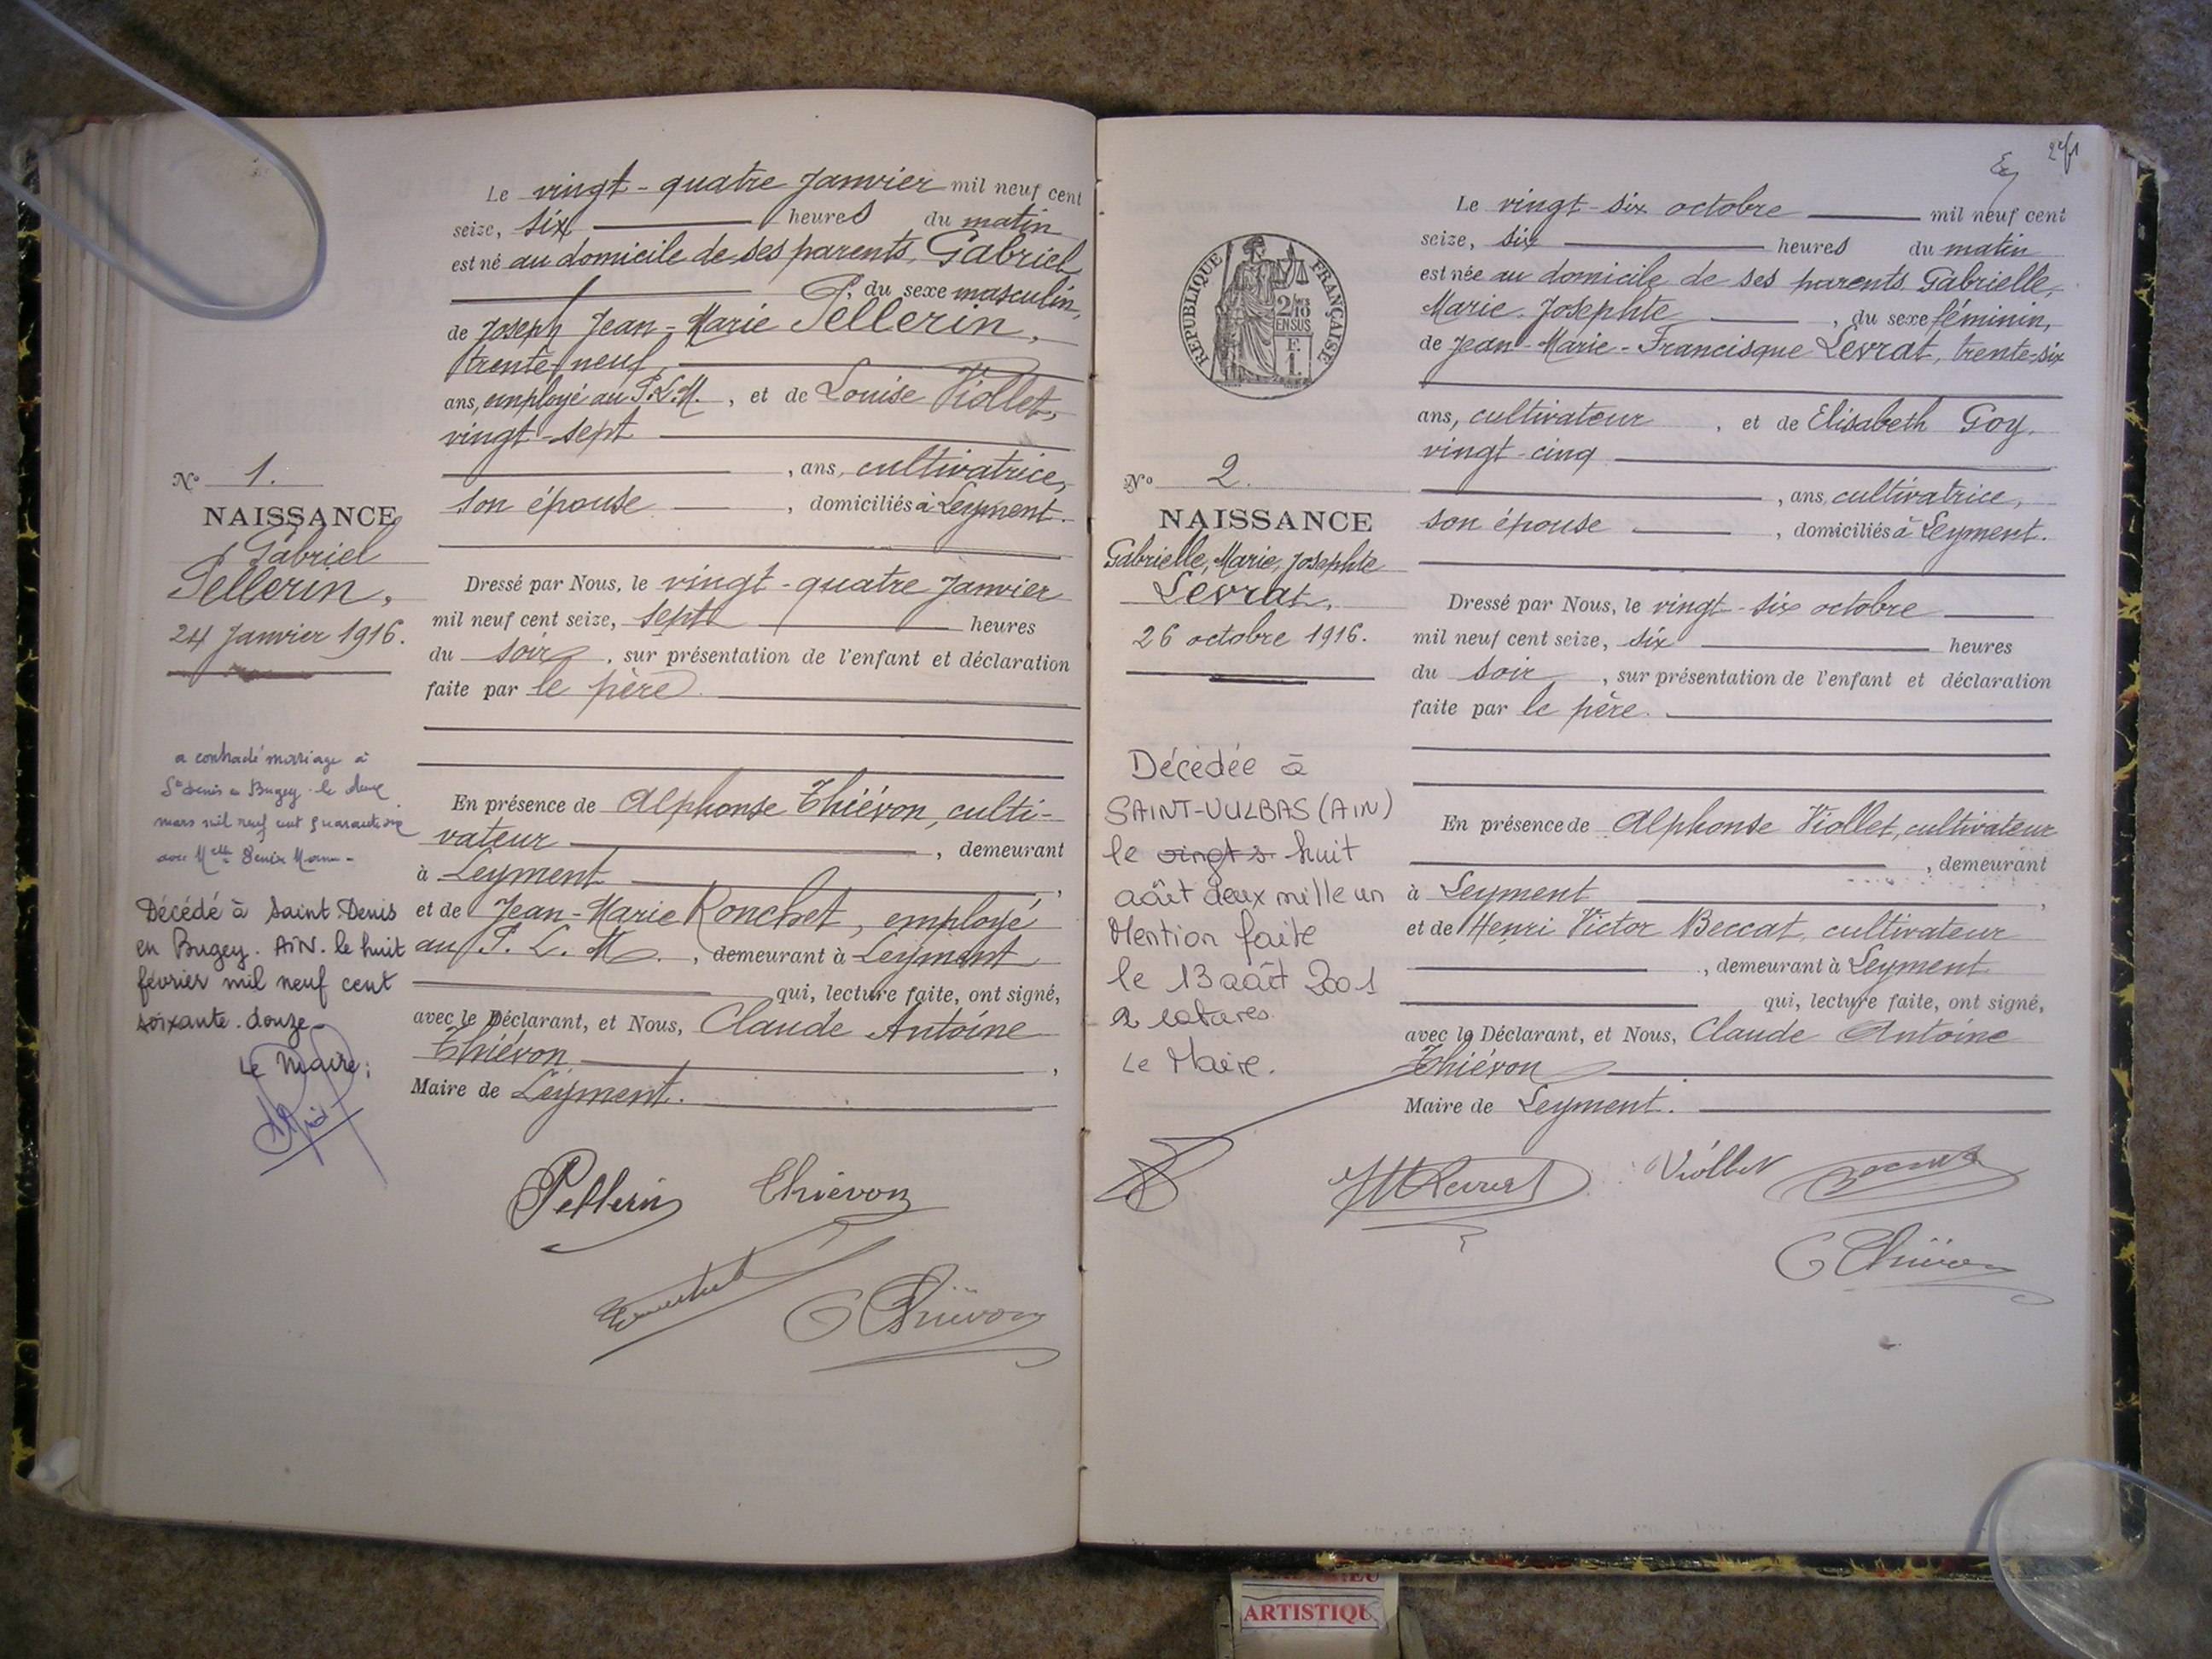 Le vingt-quatre Janvier mil neuf cent
seize, six heures du matin
est né au domicile de ses parents, Gabriel
P, du sexe masculin,
de Joseph Jean-Marie Pellerin,
trente neuf,
ans, employé au P.L.M., et de Louise Viollet,
vingt-sept
, ans, cultivatrice,
son épouse, domiciliés à Leyment.
N° 1.
NAISSANCE
Gabriel
Pellerin,
24 Janvier 1916.
Dressé par Nous, le vingt-quatre Janvier
mil neuf cent seize, sept heures
du soir, sur présentation de l'enfant et déclaration
faite par le père.
a contracté mariage à
St Denis en Bugey le deux
mars mil neuf cent quarante
avec Melle
Décédé à Saint Denis
en Bugey. AIN. le huit
février mil neuf cent
soixante. douze
Le Maire:
En présence de Alphonse Thiévon, culti-
vateur, demeurant
à Leyment,
et de Jean-Marie Ronchet, employé
au P. L. M., demeurant à Leyment
qui, lecture faite, ont signé,
avec le Déclarant, et Nous, Claude Antoine
Thiévon,
Maire de Leyment.
Pellerin Thievon
C Thiévon
241
Le vingt-six octobre mil neuf cent
seize, six heures du matin
est née au domicile de ses parents Gabrielle,
Marie, Josephte, du sexe féminin,
de Jean-Marie-Francisque Levrat, trente-six
ans, cultivateur, et de Elisabeth Goy,
vingt-cinq
, ans, cultivatrice,
son épouse, domiciliés à Leyment.
RÉPUBLIQUE FRANÇAISE
2/10
EN SUS
F.
1.
N° 2.
NAISSANCE
Gabrielle, Marie, Josephte
Levrat,
26 octobre 1916.
Dressé par Nous, le vingt-six octobre
mil neuf cent seize, six heures
du soir, sur présentation de l'enfant et déclaration
faite par le père.
Décédée à
SAINT-VULBAS (AIN)
le vingt s. huit
août deux mille un
Mention faite
le 13 août 2001
Le Maire.
En présence de Alphonse Viollet, cultivateur
, demeurant
à Leyment,
et de Henri Victor Beccat, cultivateur
, demeurant à Leyment
qui, lecture faite, ont signé,
avec le Déclarant, et Nous, Claude Antoine
Thiévon
Maire de Leyment.
Viollet
C Thiévon
ARTISTIQU